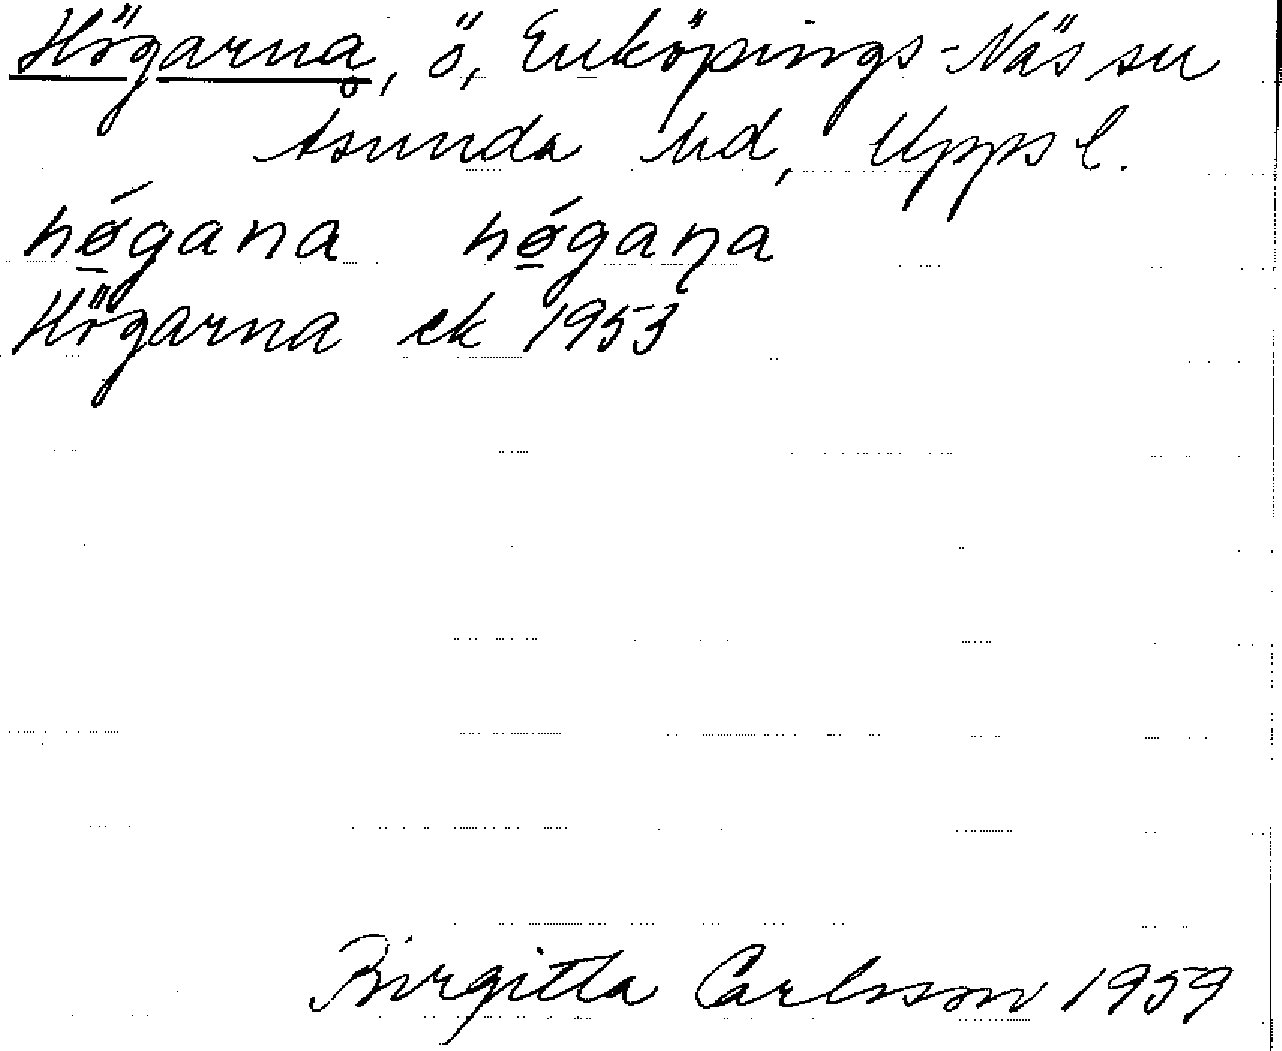 Högarna, ö, Enköpings-Näs sn
Åsunda hd, Upps l.
hǿ̱gana hǿ̱gaɳa
Högarna ek 1953
Birgitta Carlsson 1959